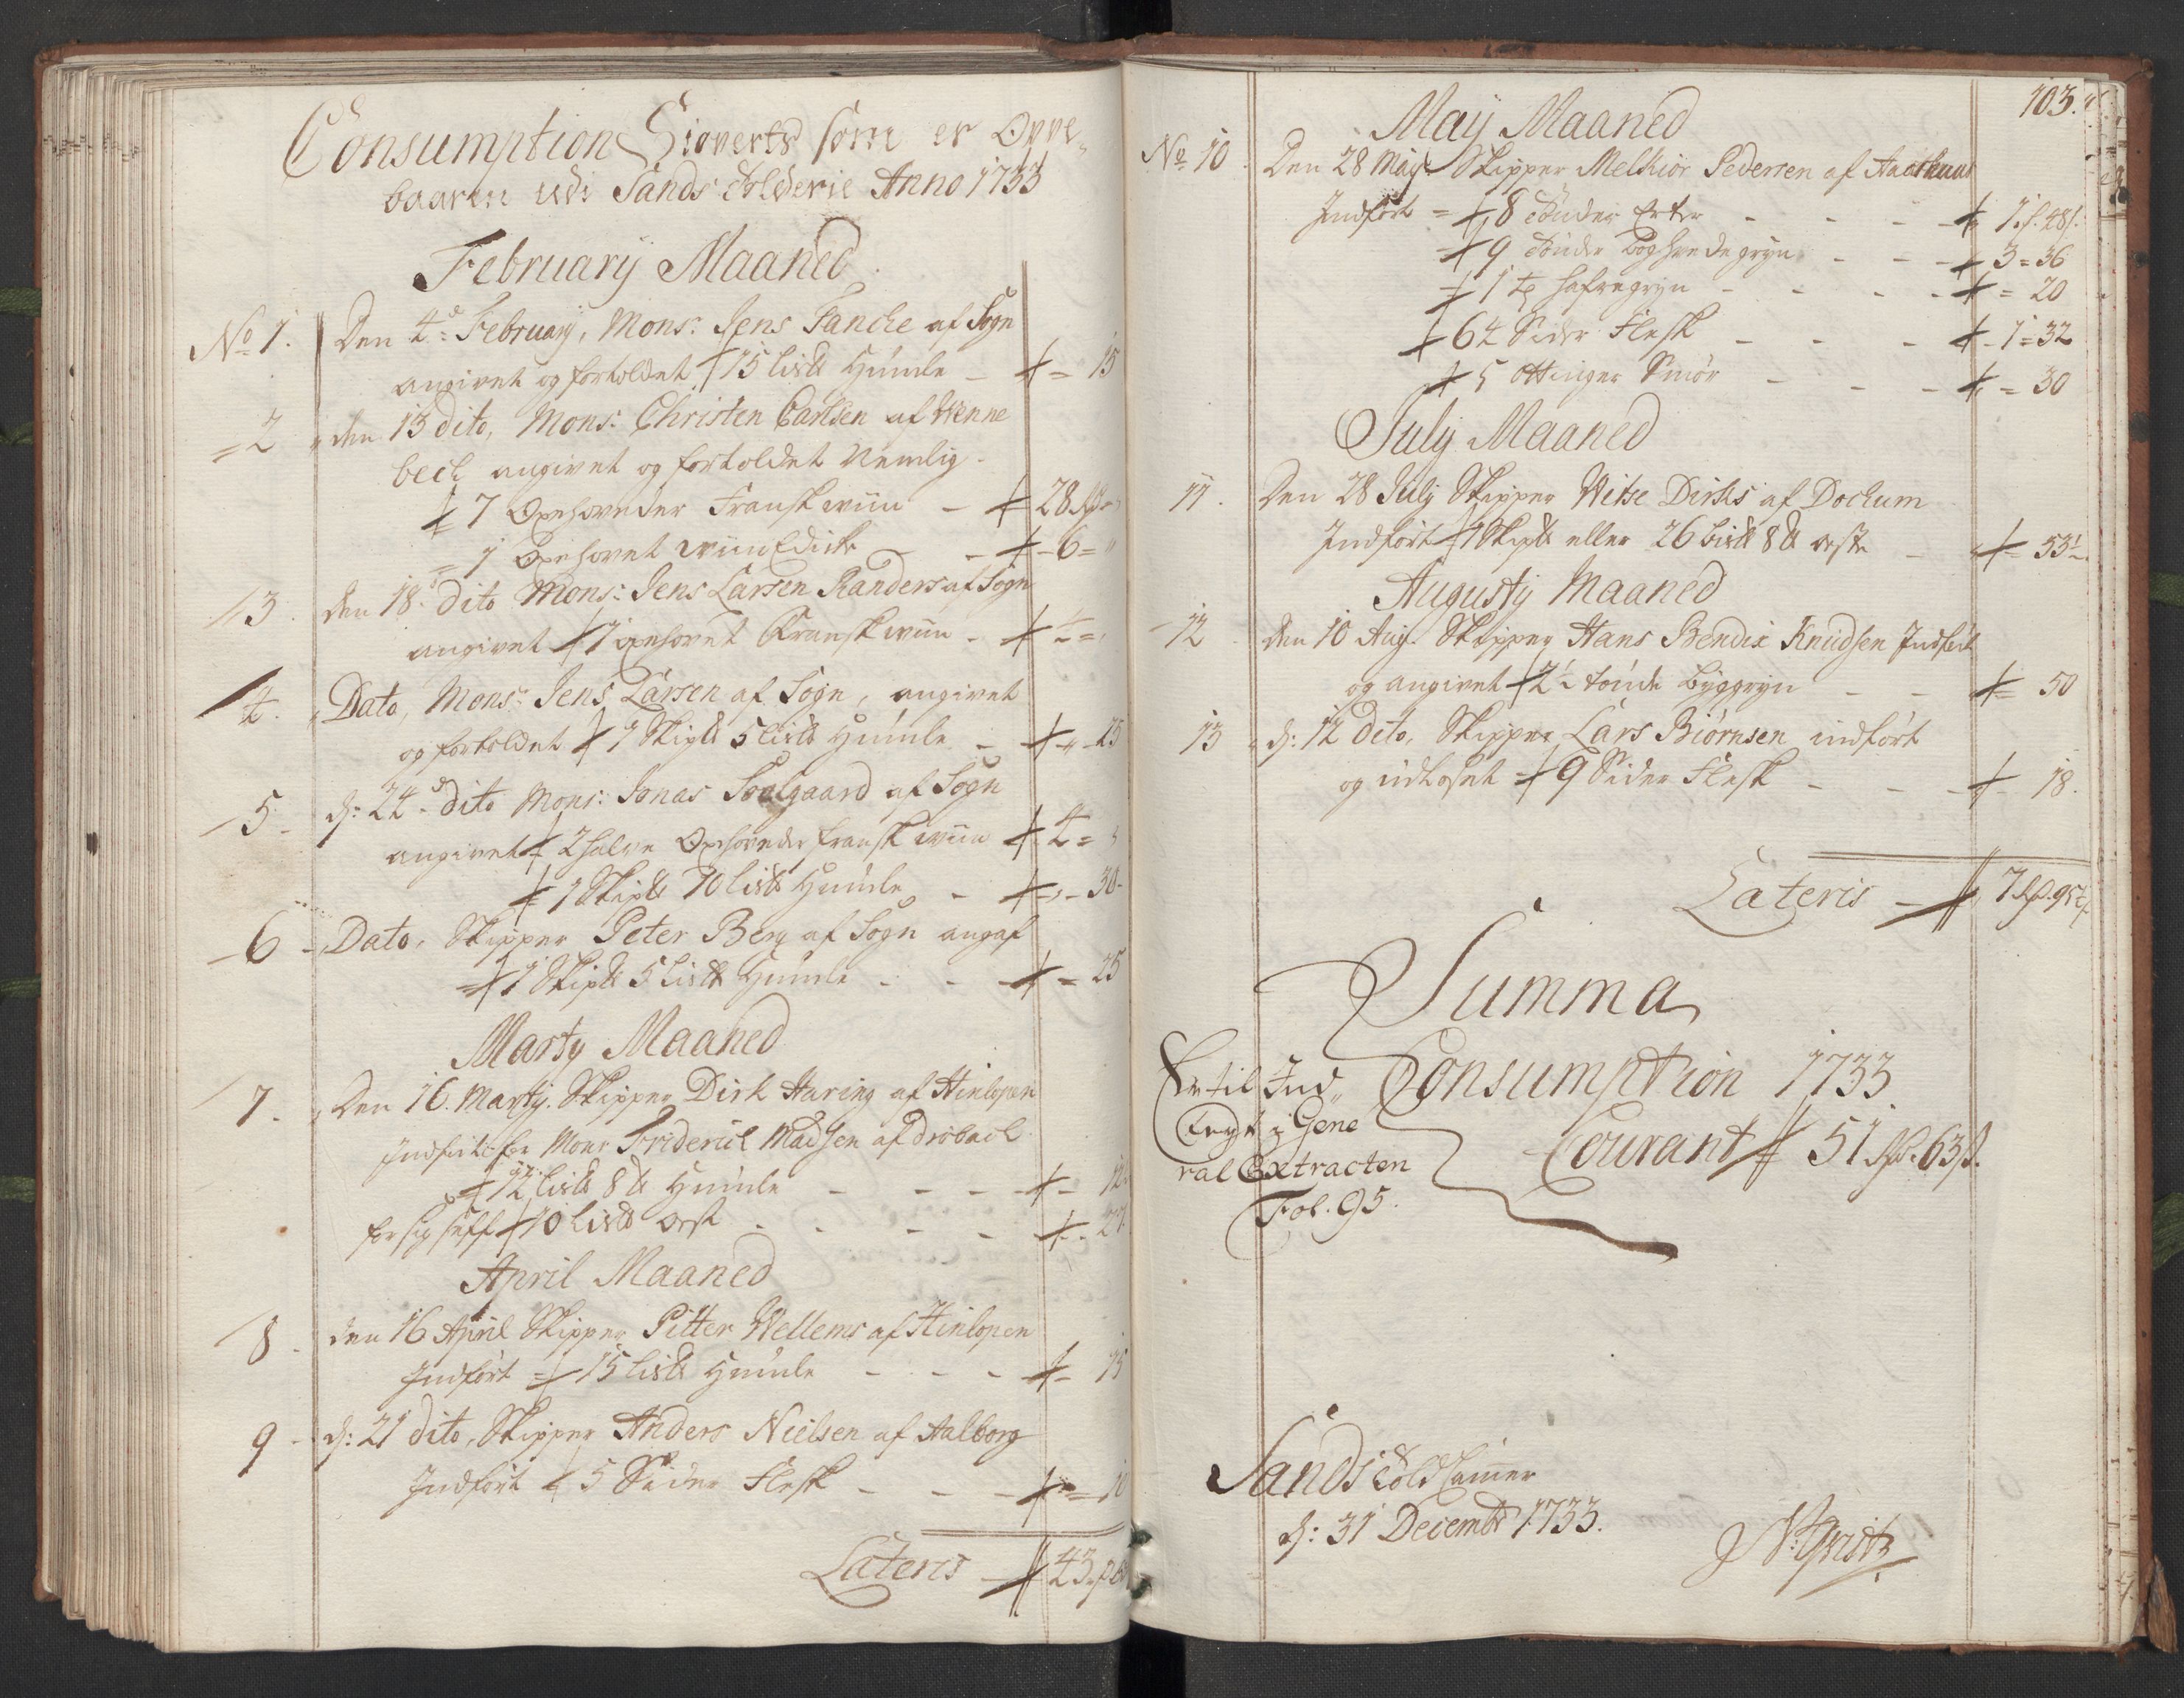 Consumption som er Oppe„
baaren udi Sands Tolderie Anno 1733
Februarij Maaned
No 1. Den 4d: February, Mons: Jens Fanche af Sogn
angivet og fortoldet 15 Lis℔ Humle - 15
2 den 13 dito, Mons: Christen Carlsen af Wenne
bech angivet og fortoldet Nemlig
7 Oxehoveder Fransk wiin - 28
1 Oxehovet wiin Edicke - 6 =
3. den 18. dito Mons: Jens Larsen Randers af Sogn
angivet 1 oxehovet Fransk wiin - 4 =
4. Dato, Mons: Jens Larsen af Sogn, angivet
og fortoldet 1 Skip℔ 5 Lis℔ Humle - 25
5. d: 24 dito Mons: Jonas Soelgaard af Sogn
angivet 2 halve Oxehoveder fransk wiin 4 =
1 Skip℔ 10 Lis℔ Humle - 30
6 Dato, Skipper Peter Berg af Sogn angaf
1 Skip℔ 5 Lis℔ Humle - - 25
Marty Maaned
7. Den 16. Martij. Skipper Dirk Haring af Hinlopen
Indført for Mons Friderich Madsen af Drøbach
12 Lis℔ 8 ℔ Humle - - - 12
for sig self 10 Lis℔ Ost - - - 21
April Maaned
8. den 16 April Skipper Pitter Wellems af Hinlopen
Indført 15 Lis℔ Humle - - - 15
9 d: 21 dito, Skipper Anders Nielsen af Aalborg
Indført 5 Sider Flesk - - - 10
Lateris - 43
103.
Maij Maaned
No 10. Den 28 Maij Skipper Melkior Pedersen af Aarhuus
Indført = 8 Tønder Erter - - - 1. 48
9 Tønder Boghvedegryn - - 3 = 36
1 Hafregryn - - - = 20
64 Sider Flesk - - - 1 = 32
5 Ottinger Smør - - - = 30
July Maaned
11. Den 28 July Skipper Witse Dirks af Dochum
Indført 1 Skip℔ eller 26 Lis℔ 8 ℔ oste - 53½
Augusty Maaned
12. den 10 Aug. Skipper Hans Bendix Knudsen Indført
og angivet 2½ tønde Byggryn - - 50
13 d: 12 dito, Skipper Lars Biørnsen indført
og udlosset 9 Sider Flesk - - - 18.
Lateris - 7
Summa
Consumption 1733
Courant 51 63
Er til Ind„
ført i Gene
ral Extracten
Fol. 95.
Sands Told Camer
d: 31 Decembr 1733.